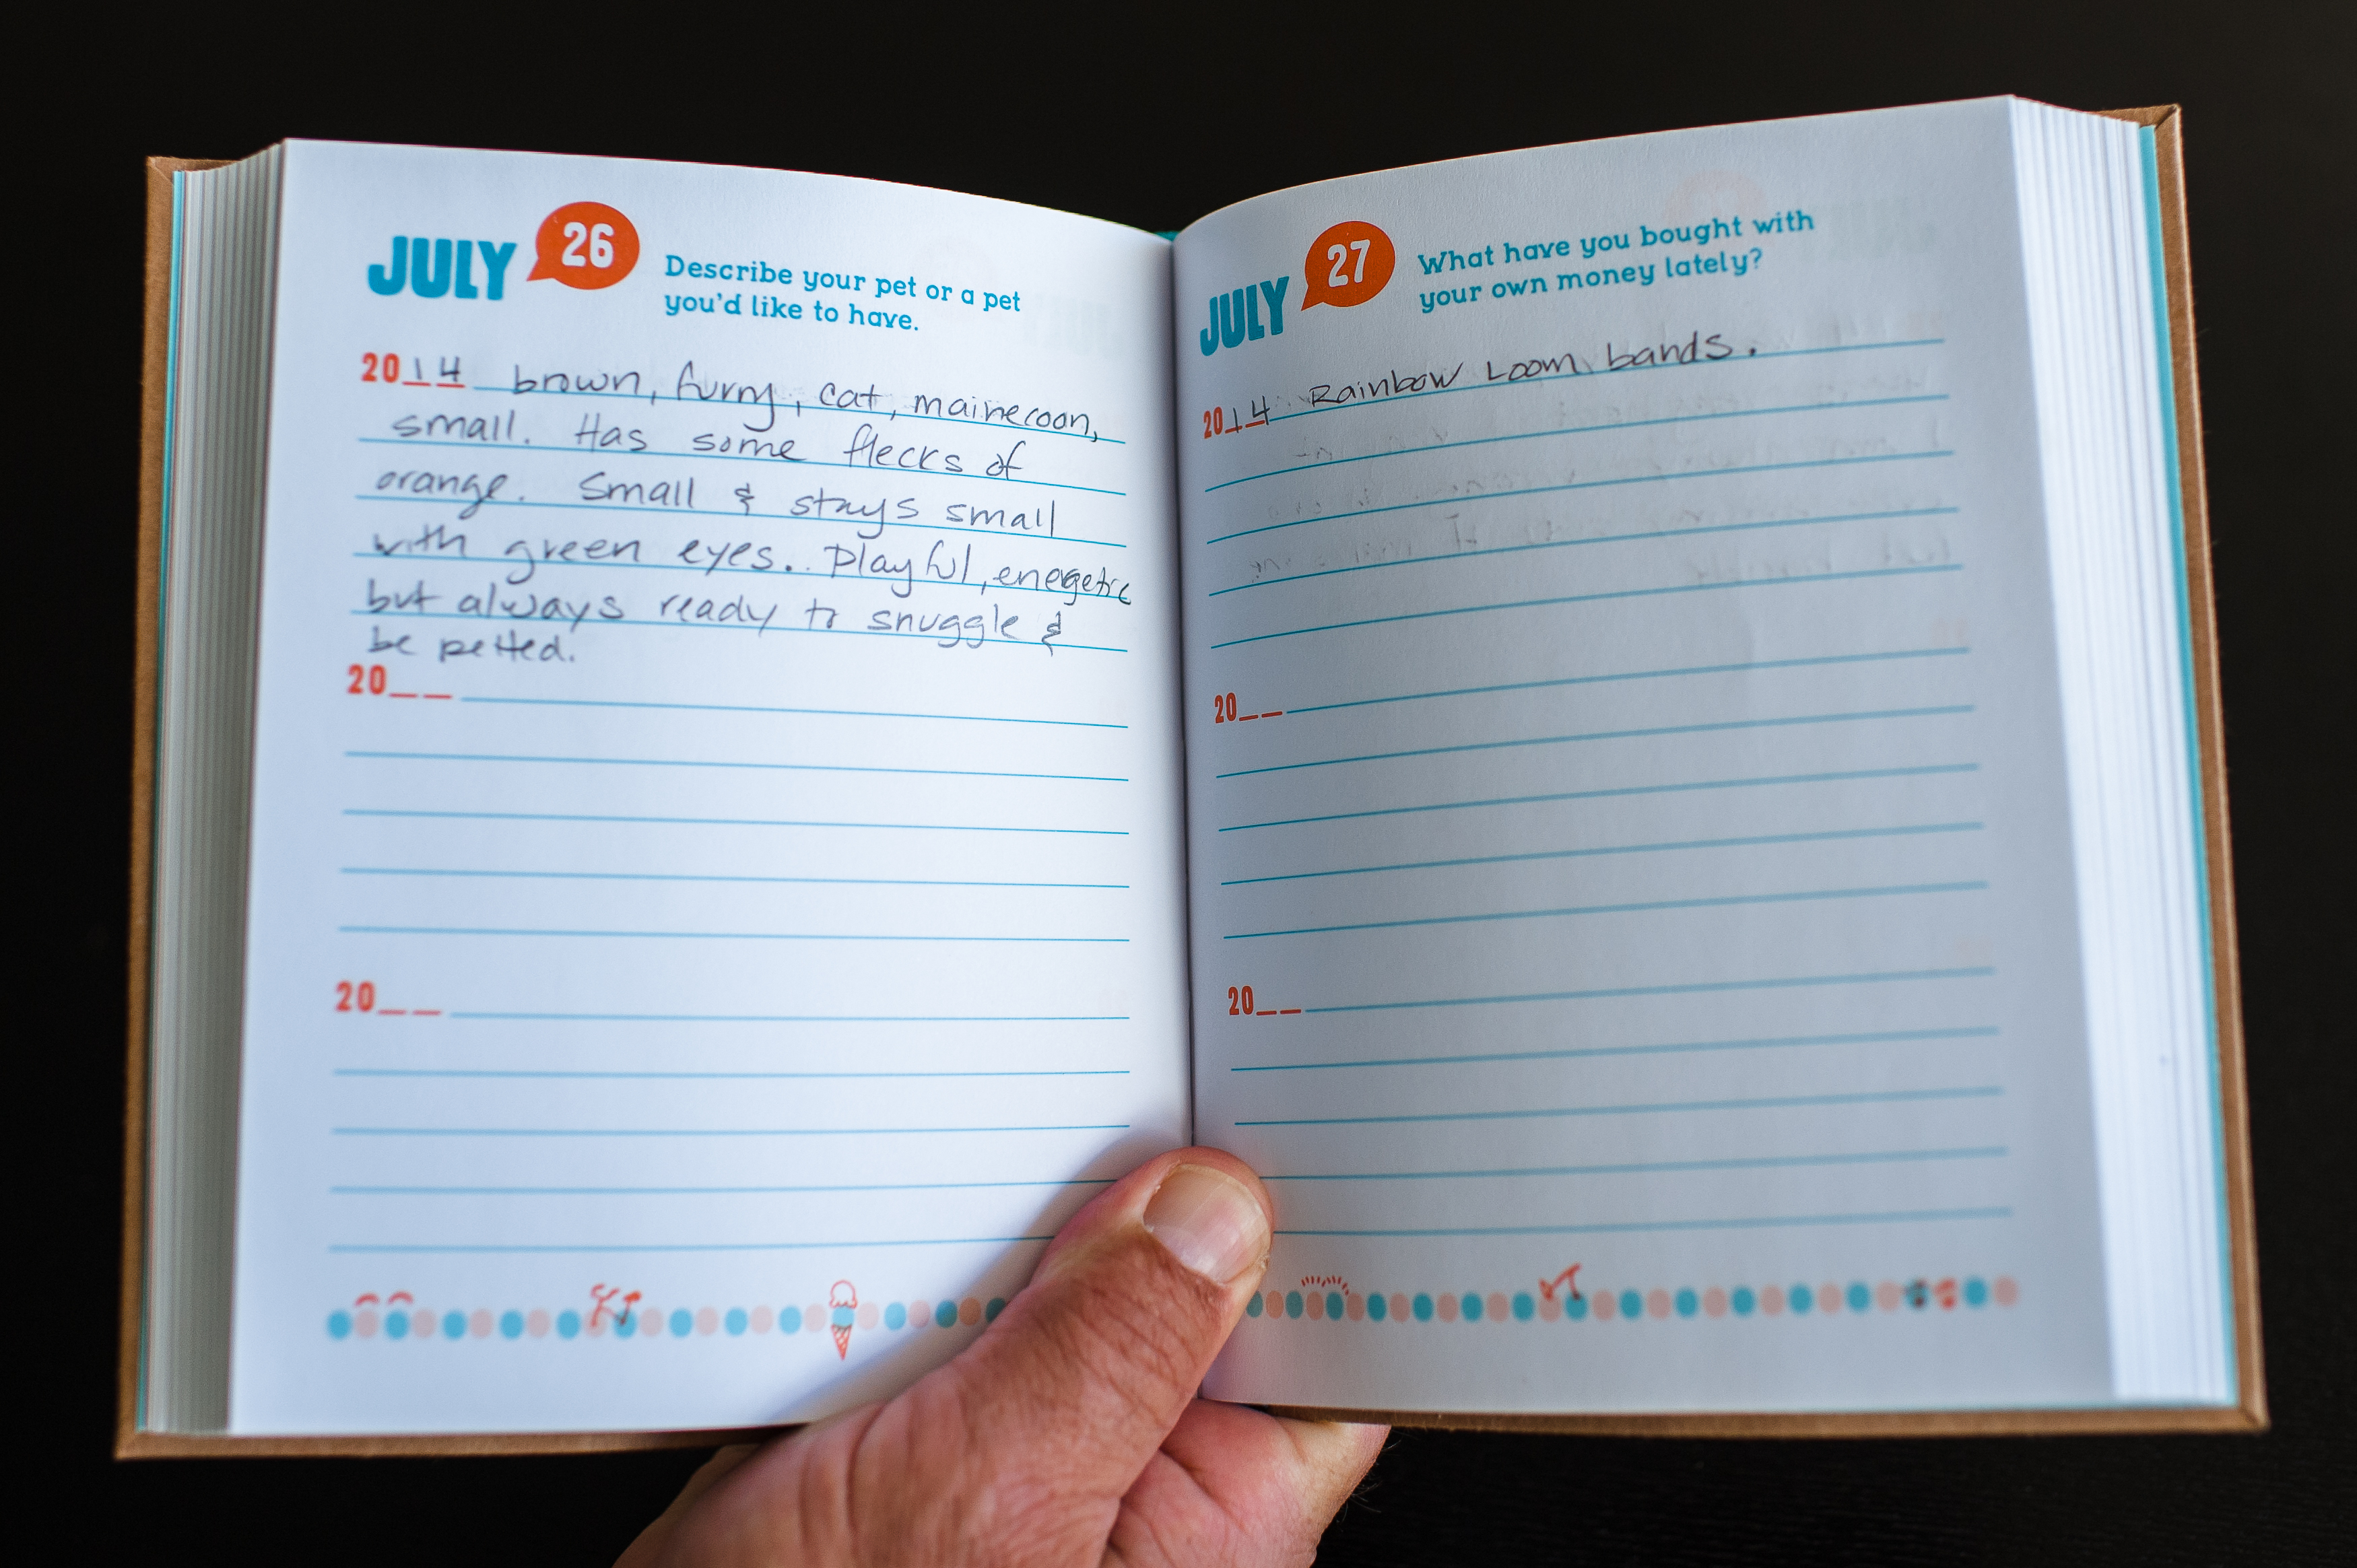 JULY 26
Describe your pet or a pet
you'd like to have.
2014 brown, furry, cat, mainecoon,
small. Has some flecks of
orange. Small & stays small
with green eyes. Playful, energetic
but always ready to snuggle &
be petted.
20__
20__
JULY 27
What have you bought with
your own money lately?
2014 Rainbow Loom bands.
20__
20__